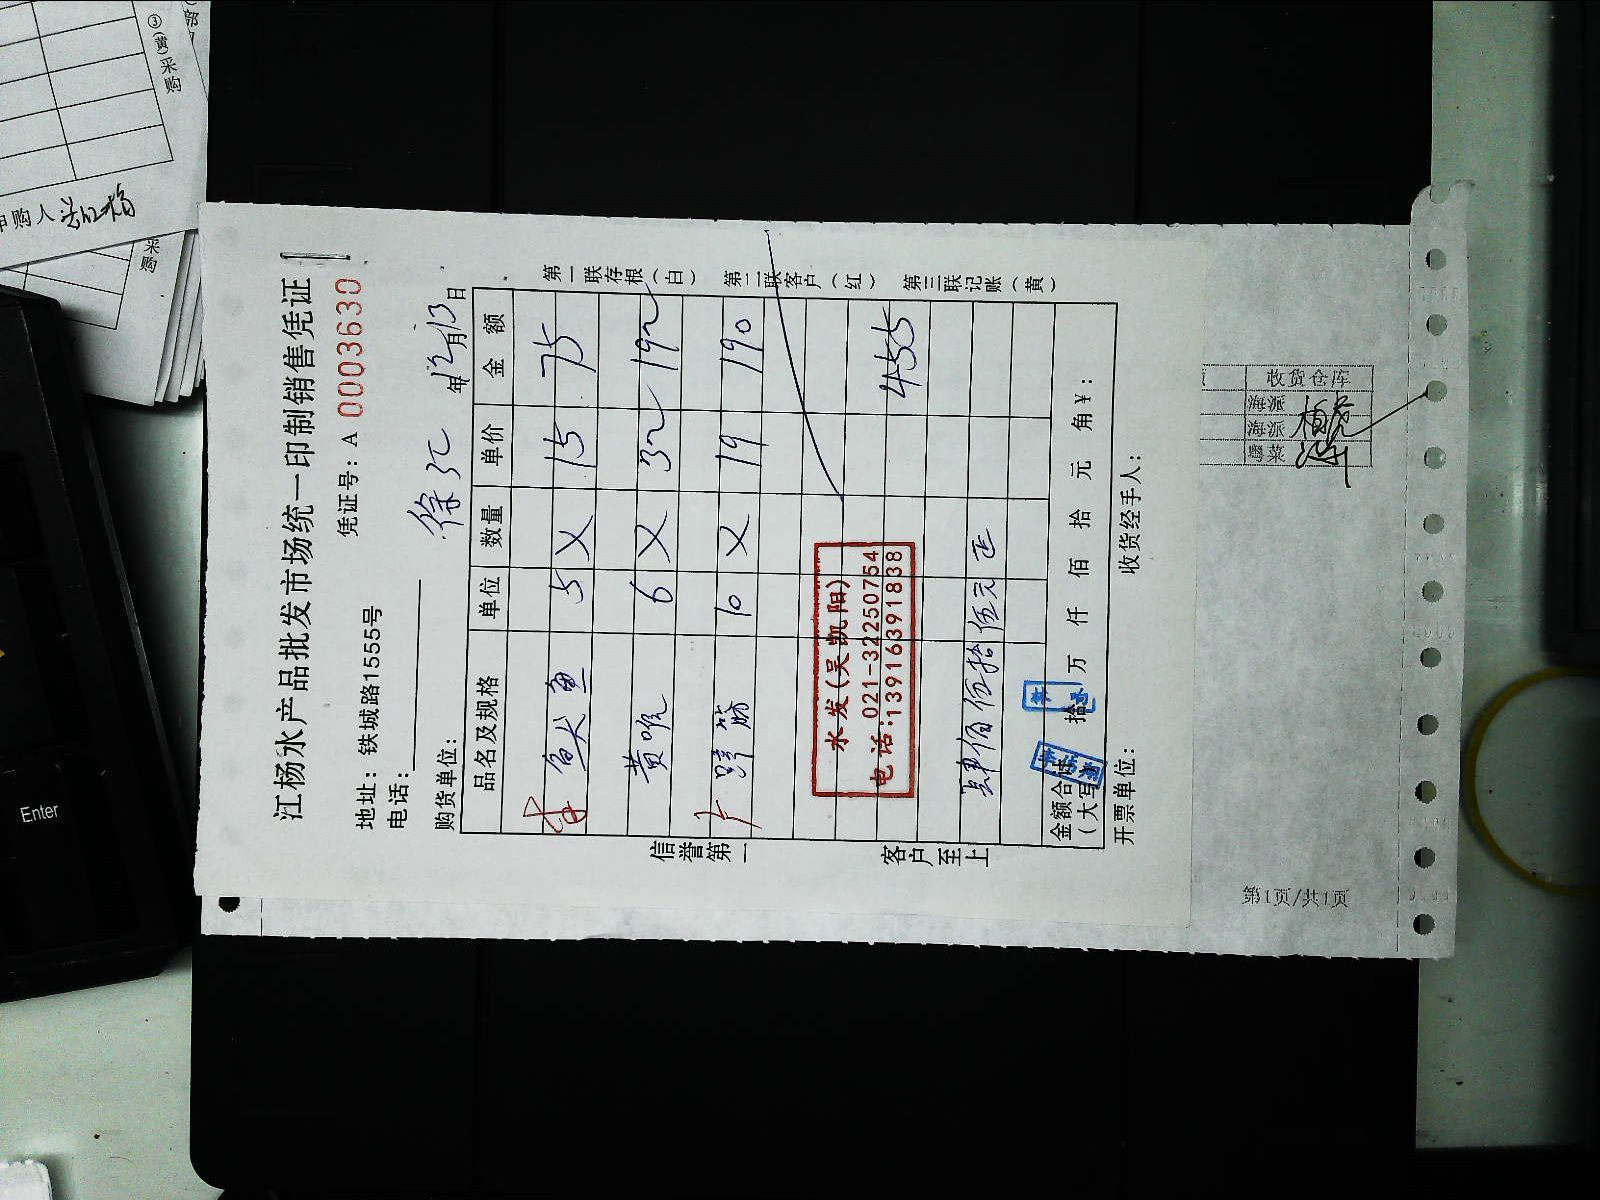 江杨水产品批发市场统一印制销售凭证
地址：铁城路1555号
凭证号：A 0003630
电话：
购货单位： 徐汇 年12月13日
品名及规格 单位 数量 单价 金额
鱼头鱼 5 × 15 75
黄喉 6 × 32 192
蹄筋 10 × 19 190
水发(吴凯阳)
电话：021-32250754
13916391838
455
肆佰伍拾伍元正
金额合计
（大写） 拾 万 仟 佰 拾 元 角 ¥：
开票单位： 收货经手人：
第一联存根（白） 第二联客户（红） 第三联记账（黄）
信誉第一 客户至上
收货仓库
海派
海派
粤菜
第1页/共1页
③(黄)采购
申购人
采购
Enter